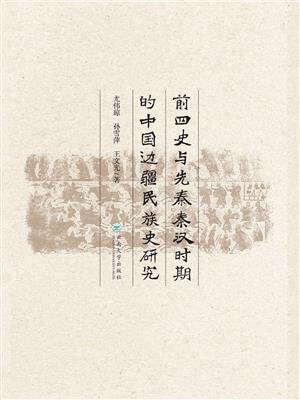 前四史与先秦秦汉时期
的中国边疆民族史研究
尤伟琼 孙雪萍 王文光 著
云南大学出版社